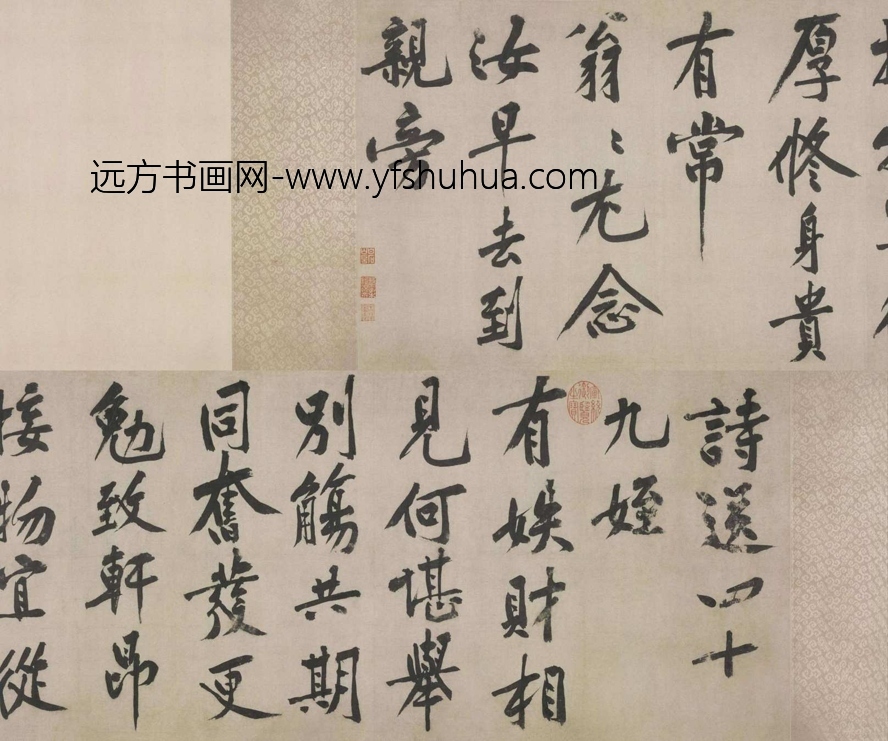 詩送四十
九姪
有娱財相
見何堪舉
別觴共期
同奮發更
勉致軒昂
接物宜從
厚修身貴
有常
翁〻尤念
汝早去到
親旁
远方书画网-www.yfshuhua.com